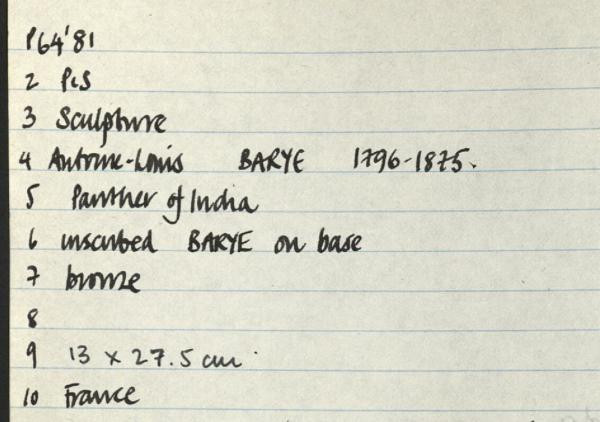 P64'81
2 PcS
3 Sculpture
4 Antoine-Louis BARYE 1796-1875.
5 Panther of India
6 inscribed BARYE on base
7 bronze
8
9 13 x 27.5 cm
10 France